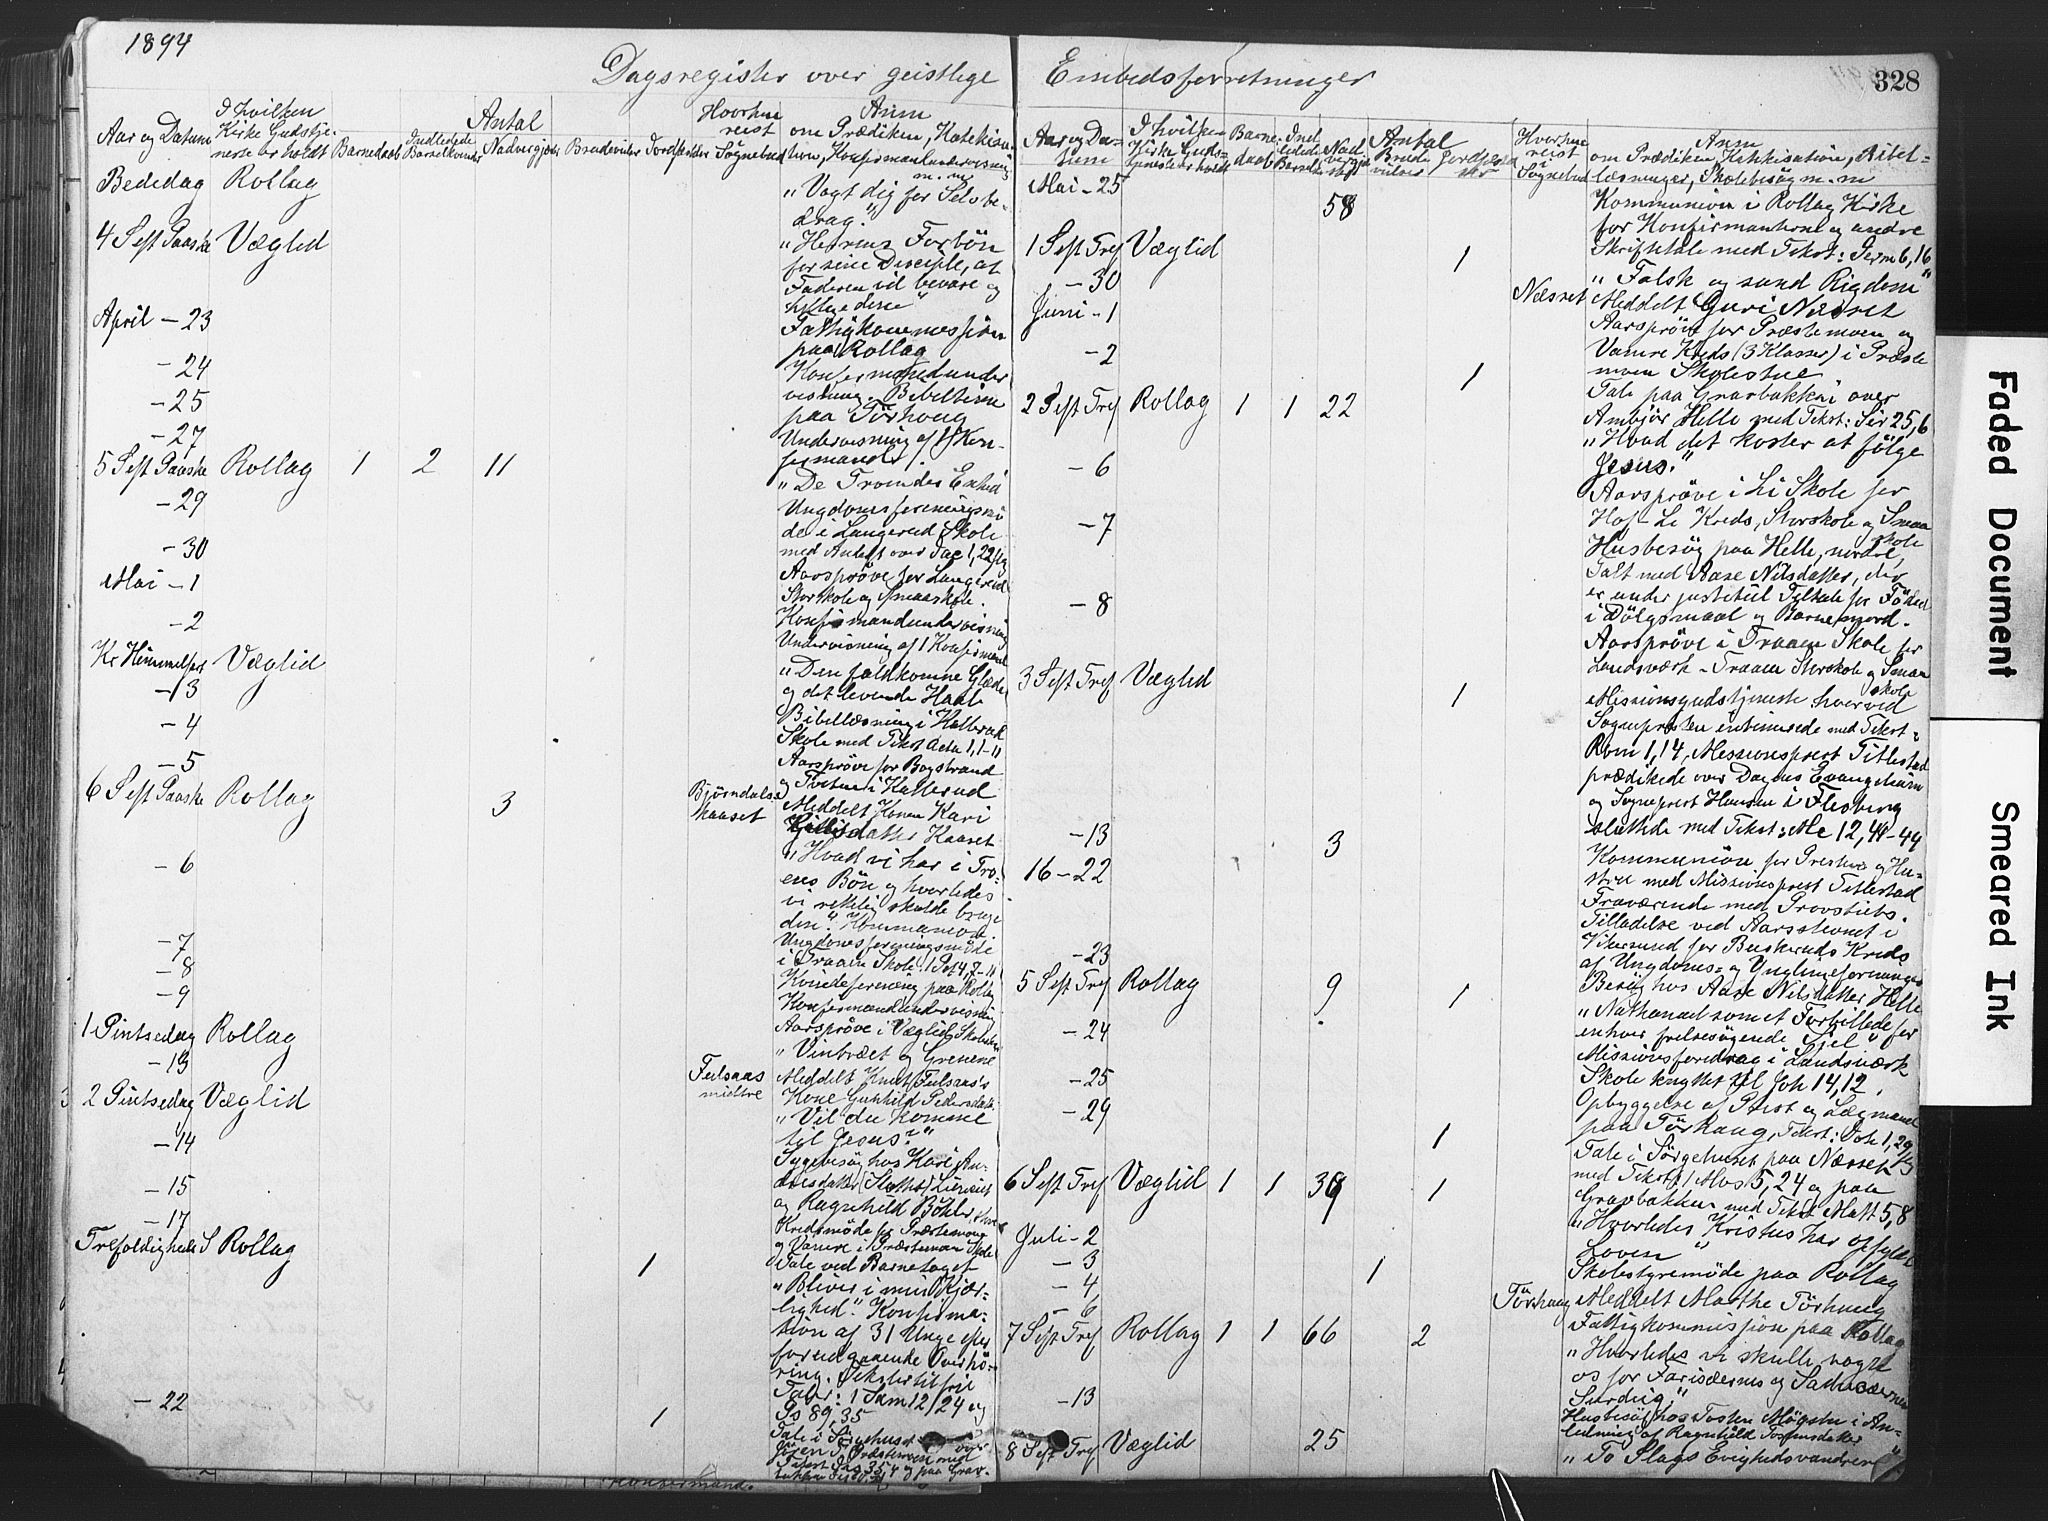 1894
Dagsregister over geistlige Embedsforretninger
328
Aar og Datum
I hvilken Kirke Gudstjeneste er holdt
Antal
Barnedaab
Indledede Barselkvinder
Nadvergjester
Brudevielser
Jordfæstelser
Hvorhen reist i Sognebud
Anm om Prædiken, Katekisation, Konfirmandundervisning m. m.
Bededag Rollag
"Vogt dig for Selvbe-
drag."
4 Søft Paaske Væglid
"Herrens Forbøn
for sine Disciple, at
Faderen vil bevare og
hellige dem"
April - 23
Fattigkommession
paa Rollag
- 24
Konfirmandunder
visning. Bibeltime
- 25
paa Törhoug
- 27
Undervisning af 1 Kon-
firmand.
5 Søft Paaske Rollag 1 2 11
"De Troendes Enhed
- 29
Ungdomsforeningsmö
de i Langerud Skole
- 30
med Andagt over Jac 1,22
Mai - 1
Aarspröve for Langerud
Storskole og Smaaskole.
- 2
Konfirmandundervisning
Undervisning af 1 Konfirmand
Kr Himmelfart Væglid
"Den fuldkomne Glæde
- 3
og det levende Haab
- 4
Bibellæsning i Kallerud
Skole med Tekst Acta 1,1-11
- 5
Aarspröve for Bogstrand
og Tveten i Kallerud
6 Søft Paaske Rollag 3 Bjørndals
kaaset
Meddelt Konen Kari
Kaaset
"Hvad vi har i Tro-
- 6
ens Bön og hvorledes
vi rettelig skulde bruge
den". Kommunion.
- 7
Ungdomsforeningsmöde
- 8
i Traaen Skole. 1 Pet 4,7-11
- 9
Kvindeforening paa Rollag
Konfirmandundervisning
Aarspröve i Væglid Skolestue
1 Pintsedag Rollag
"Vintræet og Grenene
- 13
Fulsaas
midtre
Meddelt Knut Fulsaas's
Kone Gunhild Pedersdatter
2 Pintsedag Væglid
"Vil du komme
til Jesus?"
- 14
Sygebesög hos Kari An-
- 15
og Ragnhild Böhler
- 17
Kredsmöde for Præstemoen
og Vamre i Præstemoen Skole
Trefoldigheds S Rollag 1
Tale ved Barnetoget
"Bliver i min Kjær-
lighed". Konfirma-
tion af 31 Unge efter
forudgaaende Overhö-
ring. Tekster til frie
Taler: 1 Sam 12,24 og
Ps 89,35
- 22 1
Tale i Sörgehuset over
Præstemoen med
Konfirmand.
Aar og Datum
I hvilken Kirke Gudstjeneste er holdt
Barnedaab
Indledede Barselkv
Nadvergjester
Antal
Brudevielser
Jordfæstelser
Hvorhen reist i Sognebud
Anm om Prædiken, Katekisation, Bibel-
læsninger, Skolebesög m. m
Mai - 25 58
Kommunion i Rollag Kirke
for Konfirmanterne og andre
1 Søft Tref Væglid 1
Skriftetale med Tekst: Jerm 6,16
- 30
"Falsk og sand Rigdom"
Næsset
Meddelt Guri Næsset
Juni - 1
Aarspröve for Præstemoen og
- 2
Vamre Kreds (3 Klasser) i Præste
moen Skolestue
1
Tale paa Gravbakken over
2 Søft Tref Rollag 1 1 22
Ambjör Helle med Tekst: Sir 25,6
"Hvad det koster at fölge
- 6
Jesus."
Aarspröve i Li Skole for
- 7
Hof - Li Kreds, Storskole og Smaa
skole
Husbesög paa Helle, nordre,
Talt med Aase Nilsdatter, der
- 8
er under justitiel Tiltale for Födsel
i Dölgsmaal og Barnemord.
Aarspröve i Traaen Skole for
3 Søft Tref Væglid
Landsværk - Traaen Storskole og Smaa
skole
1
Missionsgudstjeneste hvorved
Sognepresten intimerede med Tekst:
Rom 1,14, Missionsprest Titlestad
prædikede over Dagens Evangelium
og Sogneprest Hansen i Flesberg
- 13 3
sluttede med Tekst: Mc 12,41-44
16 - 22
Kommunion for Presten og Hu-
stru med Missionsprest Titlestad
Fraværende med Provstiets
Tilladelse ved Aarsstevnet i
- 23
Vikersund for Buskeruds Kreds
af Ungdoms- og Ynglingeforeninger
5 Søft Tref Rollag 9 1
Besög hos Aase Nilsdatter Helle
- 24
"Nathanael som et Forbillede for
enhver frelsesögende Sjel"
- 25
Missionsforedrag i Landsværk
Skole knyttet til Joh 14,12,
- 29
Opbyggelse af Prest og Lægmand
paa Törhaug, Tekst: Joh 1,29
1
Tale i Sörgehuset paa Næsset
6 Søft Tref Væglid 1 1 1
med Tekst 1 Mos 5,24 og paa
Gravbakken med Tekst Matt 5,8
Juli - 2
"Hvorledes Kristus har opfyldt
Loven"
- 3 1
Skolestyremöde paa Rollag
- 4 Törhaug
Meddelt Marthe Törhaug
- 6
Fattigkommission paa Rollag
7 Søft Tref Rollag 1 1 66 2
"Hvorledes vi skulle vogte
os for Farisæernes og Sadducæernes
- 13
Surdeig,"
Husbesög hos Tosten Mögster i An-
ledning af Ragnhild Tostensdatter
8 Søft Tref Væglid 25
"To Slags Evighedsvandrere"
Faded Document
Smeared Ink